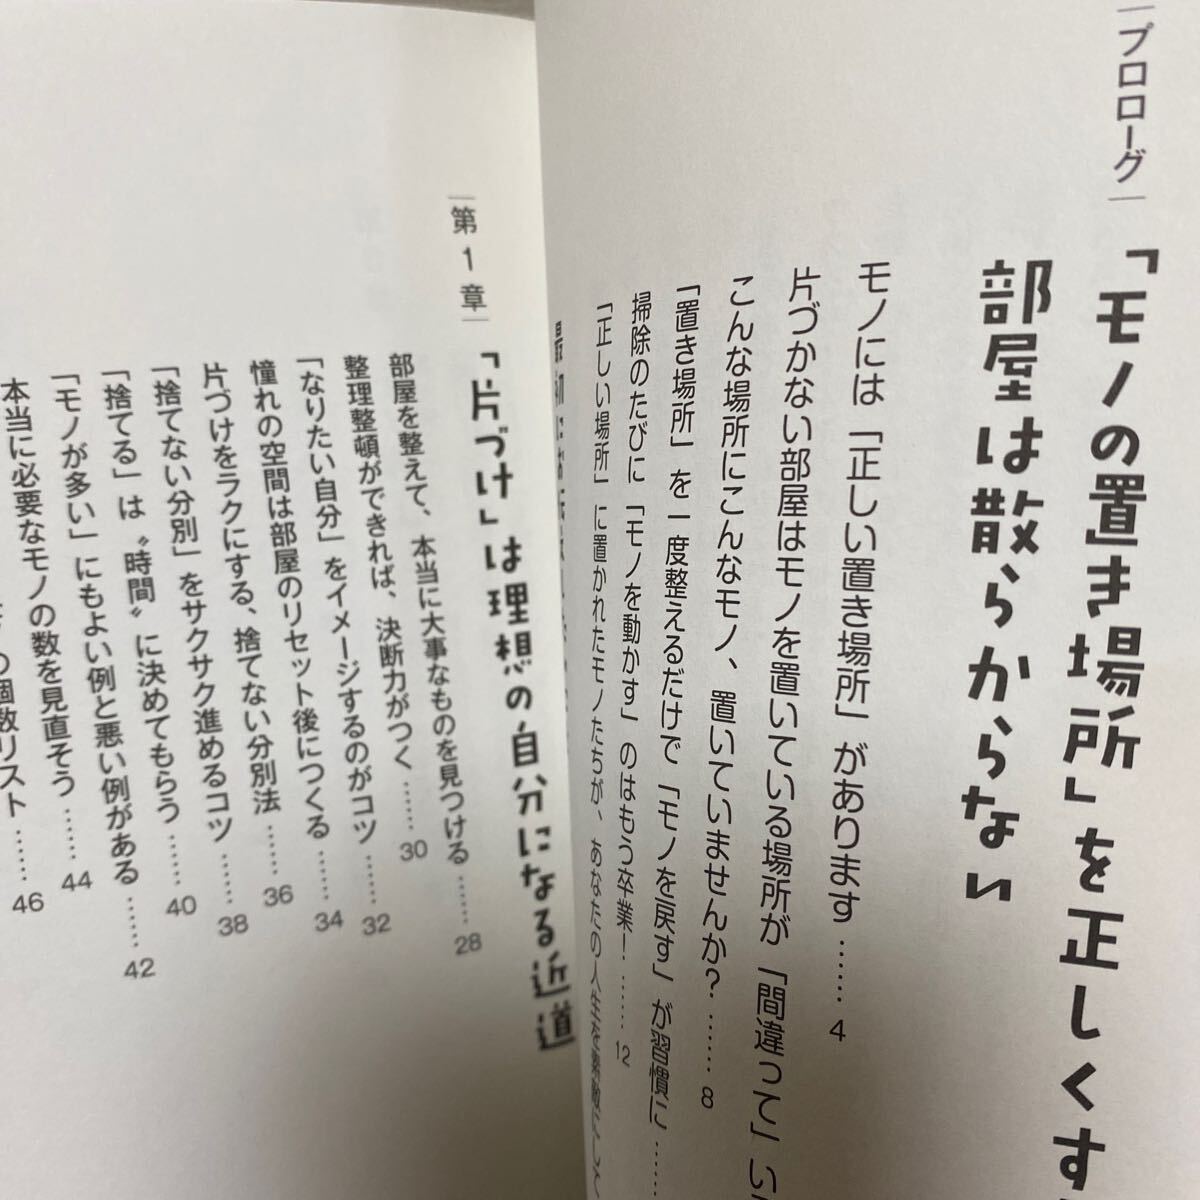 プロローグ
「モノの置き場所」を正しくす
部屋は散らからない
モノには「正しい置き場所」があります……4
片づかない部屋はモノを置いている場所が「間違って」い
こんな場所にこんなモノ、置いていませんか?……8
「置き場所」を一度整えるだけで「モノを戻す」が習慣に……
掃除のたびに「モノを動かす」のはもう卒業!……12
「正しい場所」に置かれたモノたちが、あなたの人生を素敵にして
第1章
「片づけ」は理想の自分になる近道
部屋を整えて、本当に大事なものを見つける……28
整理整頓ができれば、決断力がつく……30
「なりたい自分」をイメージするのがコツ……32
憧れの空間は部屋のリセット後につくる……34
片づけをラクにする、捨てない分別法……36
「捨てない分別」をサクサク進めるコツ……38
「捨てる」は〝時間〟に決めてもらう……40
「モノが多い」にもよい例と悪い例がある……42
本当に必要なモノの数を見直そう……44
の個数リスト……46